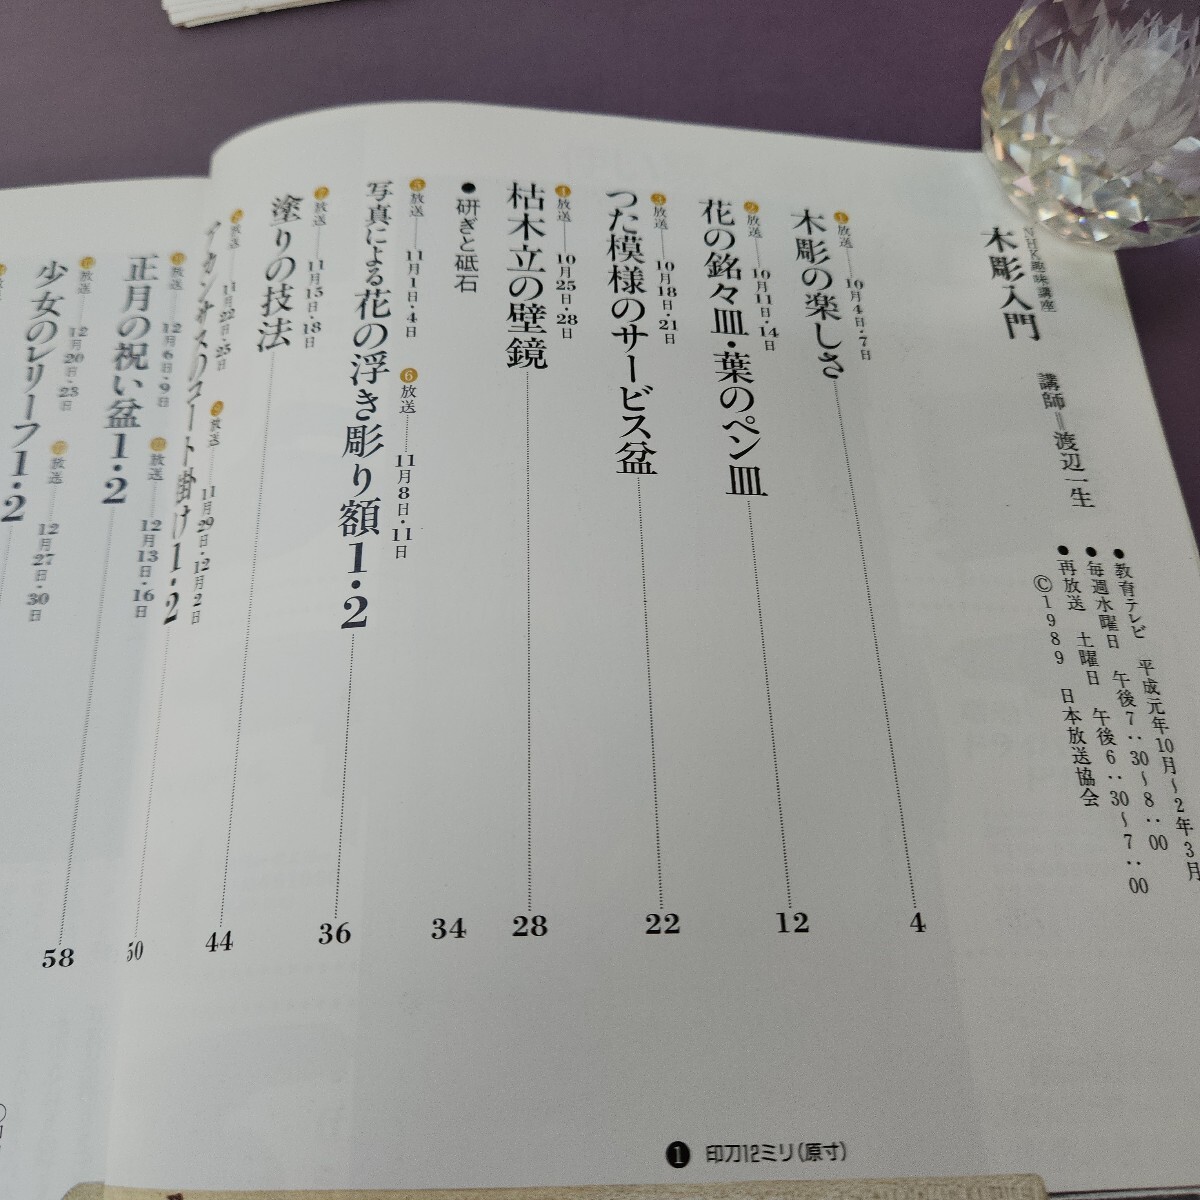 NHK趣味講座
木彫入門
講師＝渡辺一生
●教育テレビ 平成元年10月〜2年3月
●毎週水曜日 午後7:30〜8:00
●再放送 土曜日 午後6:30〜7:00
©1989 日本放送協会
1 放送 10月4日・7日
木彫の楽しさ 4
2 放送 10月11日・14日
花の銘々皿・葉のペン皿 12
3 放送 10月18日・21日
つた模様のサービス盆 22
4 放送 10月25日・28日
枯木立の壁鏡 28
●研ぎと砥石 34
5 放送 11月1日・4日
6 放送 11月8日・11日
写真による花の浮き彫り額1・2 36
7 放送 11月15日・18日
塗りの技法 44
放送 11月22日・25日
放送 11月29日・12月2日
アカンサスのコート掛け1・2
放送 12月6日・9日
放送 12月13日・16日
正月の祝い盆1・2 50
放送 12月20日・23日
放送 12月27日・30日
少女のレリーフ1・2 58
放送
1 印刀12ミリ(原寸)